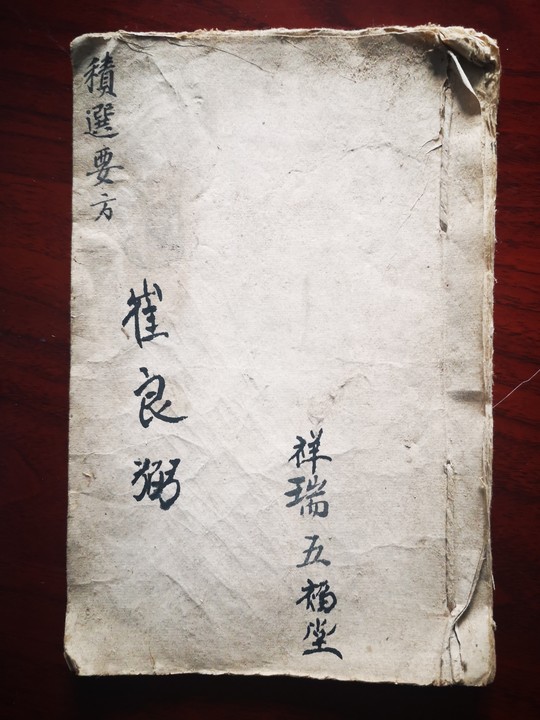 祥瑞五福堂
崔良弼
積選要方